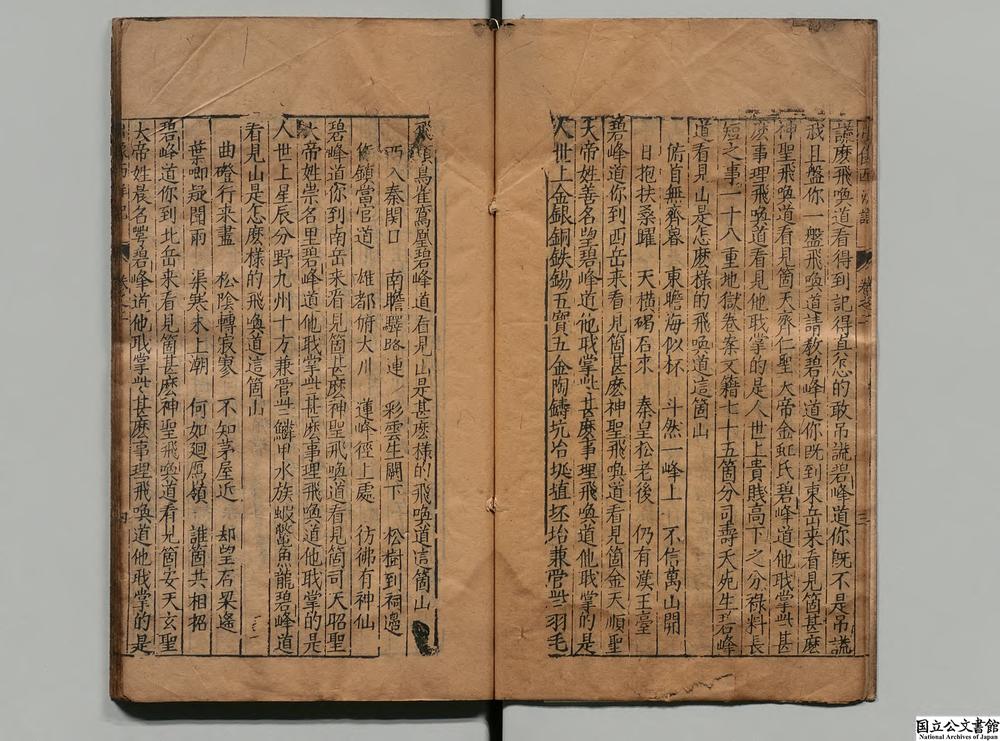 謊麽飛喚道看得到記得眞怎的敢吊謊碧峰道你旣不是吊謊
我且盤你一盤飛喚道請敎碧峰道你旣到東岳來看見箇甚麽
神聖飛喚道看見箇天齊仁聖大帝金虹氏碧峰道他職掌些甚
麽事理飛喚道看見他職掌的是人世上貴賤高下之分祿料長
短之事一十八重地獄卷案文籍七十五箇分司壽夭死生碧峰
道看見山是怎麽樣的飛喚道這箇山
俯首無齊魯 東瞻海似杯 斗然一峰上 不信萬山開
日抱扶桑躍 天橫碣石來 秦皇松老後 仍有漢王臺
碧峰道你到西岳來看見箇甚麽神聖飛喚道看見箇金天順聖
大帝姓善名望碧峰道他職掌些甚麽事理飛喚道他職掌的是
人世上金銀銅鉄錫五寶五金陶鑄坑冶埏埴坯坮兼管些羽毛
飛禽鳥雀鸞凰碧峰道看見山是甚麽樣的飛喚道這箇山
西入秦關口 南瞻驛路連 彩雲生闕下 松樹到祠邊
作鎮當官道 雄都俯大川 蓮峰徑上處 彷彿有神仙
碧峰道你到南岳來看見箇甚麽神聖飛喚道看見箇司天昭聖
大帝姓崇名里碧峰道他職掌些甚麽事理飛喚道他職掌的是
人世上星辰分野九州十方兼管些鱗甲水族蝦鱉魚龍碧峰道
看見山是怎麽樣的飛喚道這箇山
曲磴行來盡 松陰轉寂寥 不知茅屋近 却望石梁遙
葉唧疑聞雨 渠寒未上潮 何如廻鴈嶺 誰箇共相招
碧峰道你到北岳來看見箇甚麽神聖飛喚道看見箇安天玄聖
大帝姓晨名萼碧峰道他職掌些甚麽事理飛喚道他職掌的是
国立公文書館
National Archives of Japan